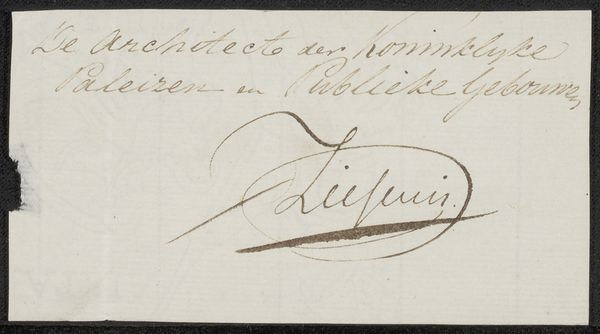 De Architect der Koninklyke
Paleizen en Publieke Gebouwen,
Ziesenis.